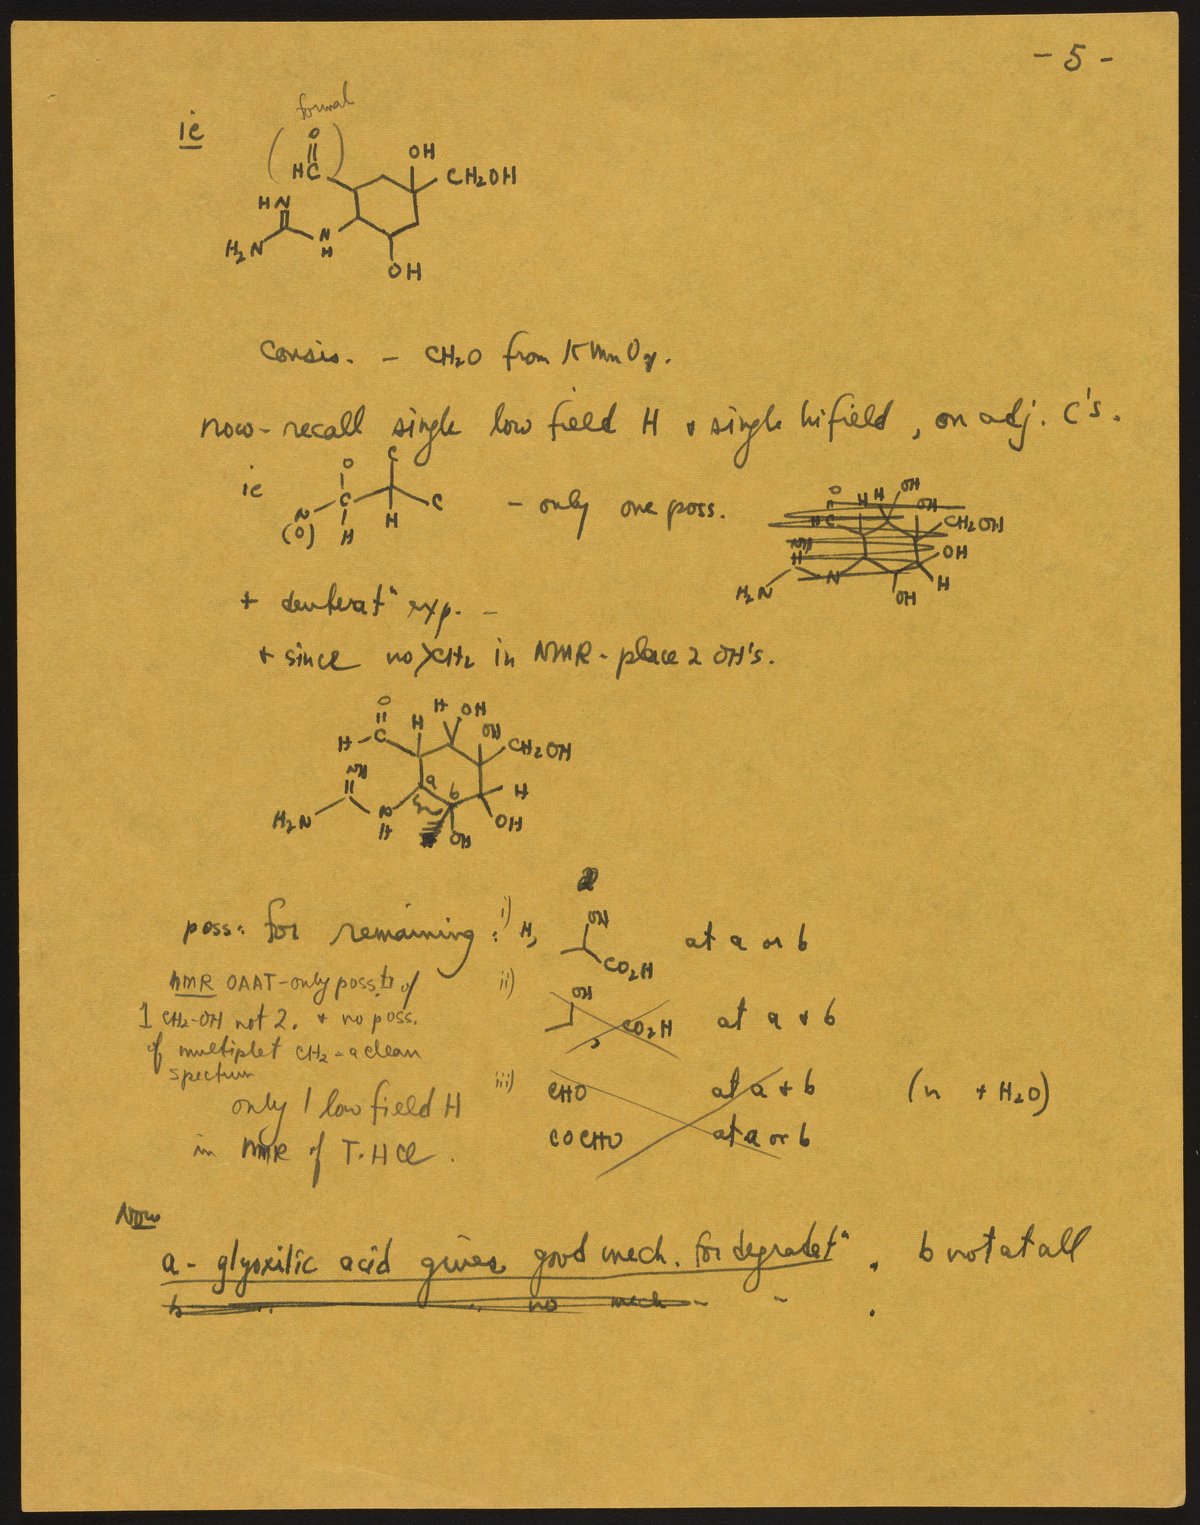 - 5 -
formal
ie
O
HC
OH
CH2OH
HN
H2N
N
H
OH
Consis. - CH2O from KMnO4.
now - recall single low field H + single hifield, on adj. C's.
ie
O
C
N
C
C
(O)
H
H
- only one poss.
O
H
H
OH
HC
OH
CH2OH
NH
OH
H2N
N
OH
H
+ deuterat^n exp. -
+ since no XCH2 in NMR - place 2 OH's.
O
H
OH
H - C
H
OH
CH2OH
NH
a
b
H
H2N
N
H
OH
OH
poss: for remaining: i) H,
OH
CO2H
at a or b
NMR OAAT - only poss. of
1 CH2-OH not 2. + no poss.
of multiplet CH2 - a clean
spectrum
ii)
OH
, CO2H
at a + b
iii) CHO at a + b (n + H2O)
COCHO at a or b
only 1 low field H
in NMR of T.HCl.
Now
a - glyoxilic acid gives good mech. for degradat^n. b not at all
b " " no mech - - .